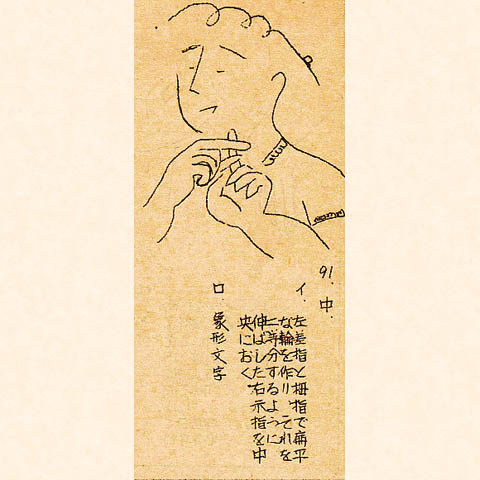 91. 中.
イ. 左差指と拇指で扁平
な輪を作り、それを
二等分するように
伸ばした右示指を中
央におく
ロ 象形文字